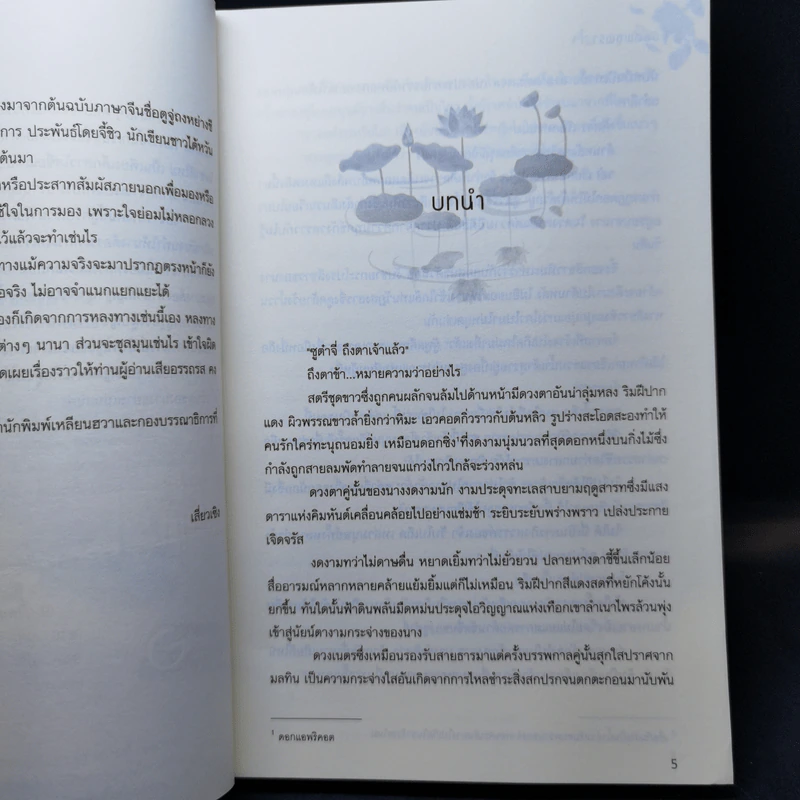 งมาจากต้นฉบับภาษาจีนชื่อตูจู่ถงหย่างซี
การ ประพันธ์โดยจี้ชิว นักเขียนชาวไต้หวัน
ต้นมา
หรือประสาทสัมผัสภายนอกเพื่อมองหรือ
ใช้ใจในการมอง เพราะใจย่อมไม่หลอกลวง
ไว้แล้วจะทำเช่นไร
ทางแม้ความจริงจะมาปรากฏตรงหน้าก็ยัง
อจริง ไม่อาจจำแนกแยกแยะได้
องก็เกิดจากการหลงทางเช่นนี้เอง หลงทาง
ต่างๆ นานา ส่วนจะชุลมุนเช่นไร เข้าใจผิด
ดเผยเรื่องราวให้ท่านผู้อ่านเสียอรรถรส คง
นักพิมพ์เหลียนฮวาและกองบรรณาธิการที่
เสี่ยวเชิง
บทนำ
"ซูต๋าจี่ ถึงตาเจ้าแล้ว"
ถึงตาข้า...หมายความว่าอย่างไร
สตรีชุดขาวซึ่งถูกคนผลักจนล้มไปด้านหน้ามีดวงตาอันน่าลุ่มหลง ริมฝีปาก
แดง ผิวพรรณขาวล้ำยิ่งกว่าหิมะ เอวคอดกิ่วราวกับต้นหลิว รูปร่างสะโอดสะองทำให้
คนรักใคร่ทะนุถนอมยิ่ง เหมือนดอกซิ่ง¹ที่งดงามนุ่มนวลที่สุดดอกหนึ่งบนกิ่งไม้ซึ่ง
กำลังถูกสายลมพัดทำลายจนแกว่งไกวใกล้จะร่วงหล่น
ดวงตาคู่นั้นของนางงดงามนัก งามประดุจทะเลสาบยามฤดูสารทซึ่งมีแสง
ดาราแห่งคิมหันต์เคลื่อนคล้อยไปอย่างแช่มช้า ระยิบระยับพร่างพราว เปล่งประกาย
เจิดจรัส
งดงามทว่าไม่ดาษดื่น หยาดเยิ้มทว่าไม่ยั่วยวน ปลายหางตาชี้ขึ้นเล็กน้อย
สื่ออารมณ์หลากหลายคล้ายแย้มยิ้มแต่ก็ไม่เหมือน ริมฝีปากสีแดงสดที่หยักโค้งนั้น
ยกขึ้น ทันใดนั้นฟ้าดินพลันมืดหม่นประดุจไอวิญญาณแห่งเทือกเขาลำเนาไพรล้วนพุ่ง
เข้าสู่นัยน์ตางามกระจ่างของนาง
ดวงเนตรซึ่งเหมือนรองรับสายธารมาแต่ครั้งบรรพกาลคู่นั้นสุกใสปราศจาก
มลทิน เป็นความกระจ่างใสอันเกิดจากการไหลชำระสิ่งสกปรกจนตกตะกอนมานับพัน
¹ ดอกแอพริคอต
5